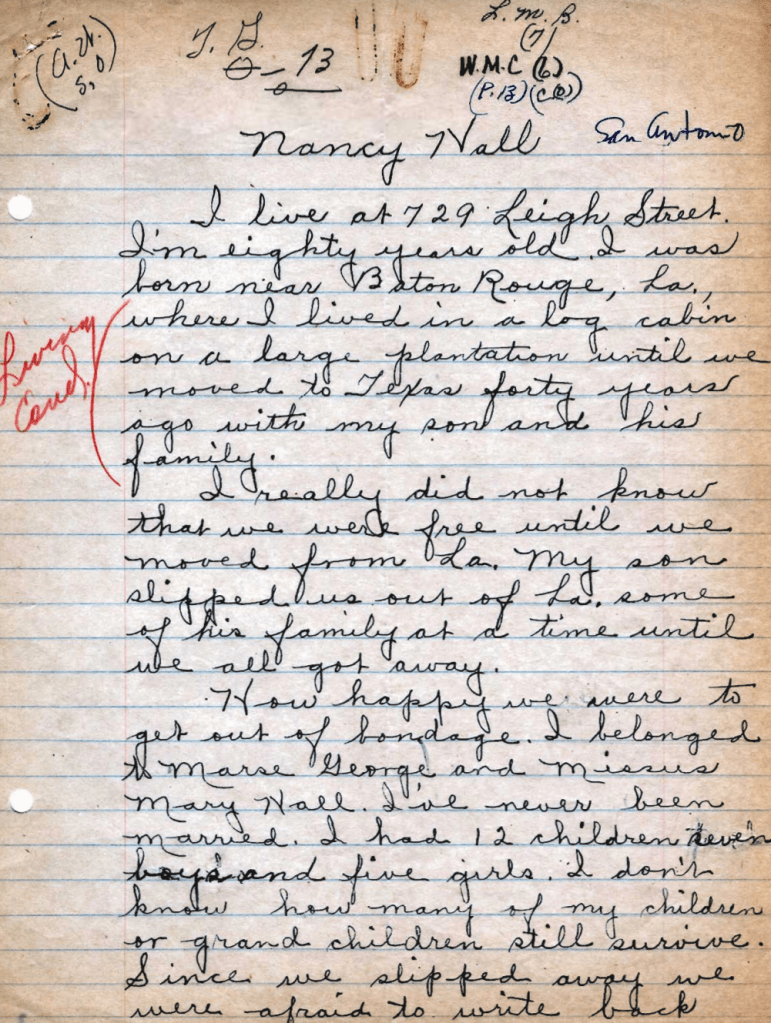 (a.H.
S, O)
T. G.
O - 13
L. M. B.
(7)
W.M.C (6)
(P. 13) (C O)
San Antonio
Nancy Hall
I live at 729 Leigh Street.
I'm eighty years old. I was
born near Baton Rouge, La.,
where I lived in a log cabin
on a large plantation until we
moved to Texas forty years
ago with my son and his
family.
Living
Cond.
I really did not know
that we were free until we
moved from La. My son
slipped us out of La. some
of his family at a time until
we all got away.
How happy we were to
get out of bondage. I belonged
to Marse George and Missus
Mary Hall. I've never been
married. I had 12 children seven
boys and five girls. I don't
know how many of my children
or grand children still survive.
Since we slipped away we
were afraid to write back